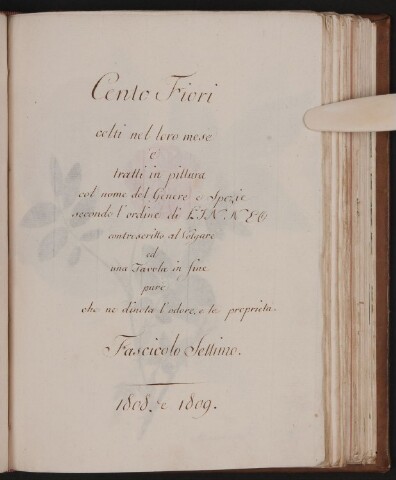 Cento Fiori
colti nel loro mese
e
tratti in pittura
col nome del Genere e Spezie
secondo l'ordine di LINNEO
contrascritto al Volgare
ed
una Tavola in fine
pure
che ne dinota l'odore, e le proprietà.
Fascicolo Settimo.
1808. e 1809.